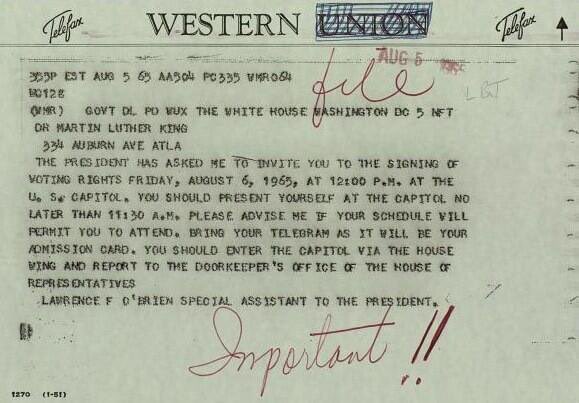 Telefax WESTERN UNION Telefax
AUG 6 1965
355P EST AUG 5 65 AA504 PC335 WMR064
file
WC128
(WMR) GOVT DL PD WUX THE WHITE HOUSE WASHINGTON DC 5 NFT
DR MARTIN LUTHER KING
334 AUBURN AVE ATLA
THE PRESIDENT HAS ASKED ME TO INVITE YOU TO THE SIGNING OF
VOTING RIGHTS FRIDAY, AUGUST 6, 1965, AT 12:00 P.M. AT THE
U. S. CAPITOL. YOU SHOULD PRESENT YOURSELF AT THE CAPITOL NO
LATER THAN 11:30 A.M. PLEASE ADVISE ME IF YOUR SCHEDULE WILL
PERMIT YOU TO ATTEND. BRING YOUR TELEGRAM AS IT WILL BE YOUR
ADMISSION CARD. YOU SHOULD ENTER THE CAPITOL VIA THE HOUSE
WING AND REPORT TO THE DOORKEEPER'S OFFICE OF THE HOUSE OF
REPRESENTATIVES
LAWRENCE F O'BRIEN SPECIAL ASSISTANT TO THE PRESIDENT.
Important!!
1270 (1-51)